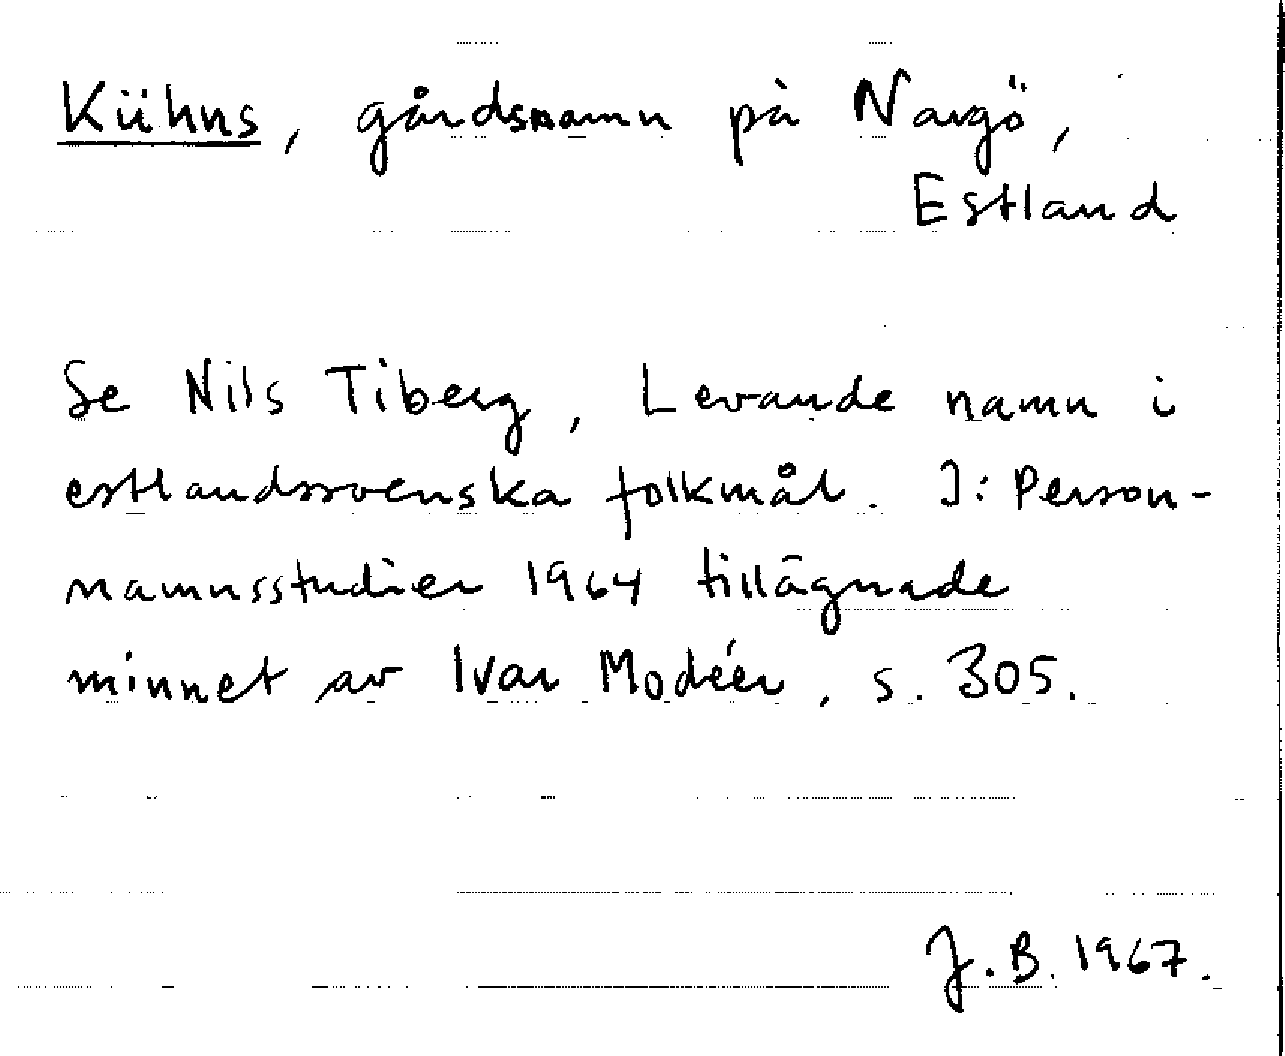 Kühns, gårdsnamn på Nargö,
Estland
Se Nils Tiberg, Levande namn i
estlandssvenska folkmål. I: Person-
namnsstudier 1964 tillägnade
minnet av Ivar Modéer, s. 305.
J.B. 1967.